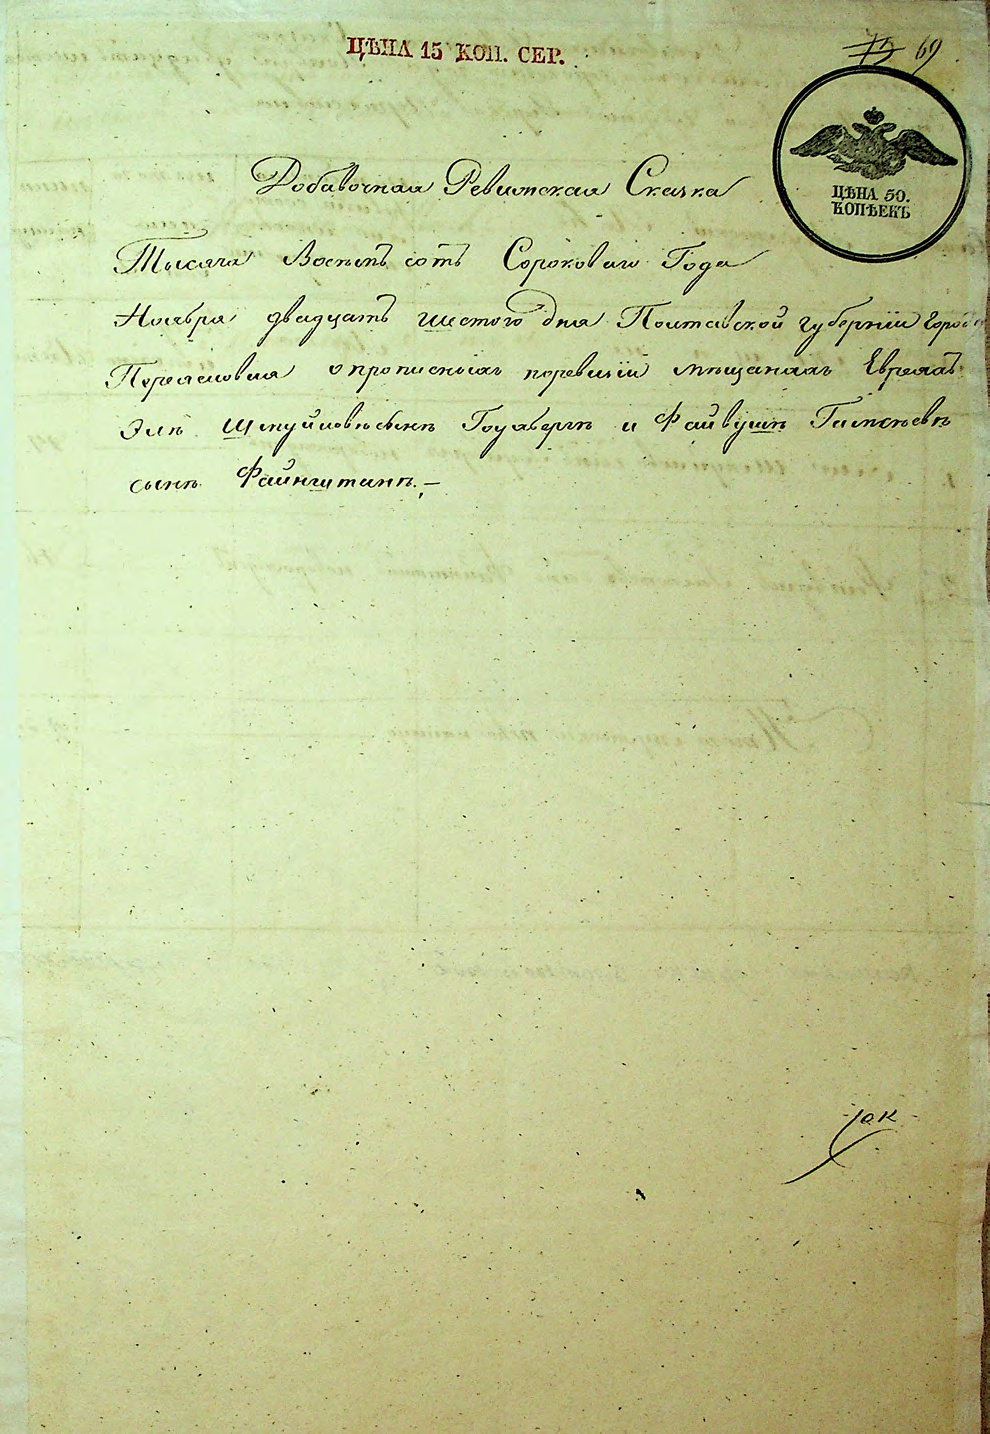 ЦѢНА 15 КОП. СЕР.
75 69
ЦѢНА 50.
КОПѢЕКЪ
Добавочная Ревизская Сказка
Тысяча Восемъ сотъ Сороковаго Года
Ноября двадцать шестого дня Полтавской губерніи Города
Переяславля о прописныхъ поревизіи мѣщанахъ Евреяхъ
Элѣ Шмуйловѣ сынѣ Гольбергѣ и Файвушѣ
сынѣ Файнштинѣ.;—